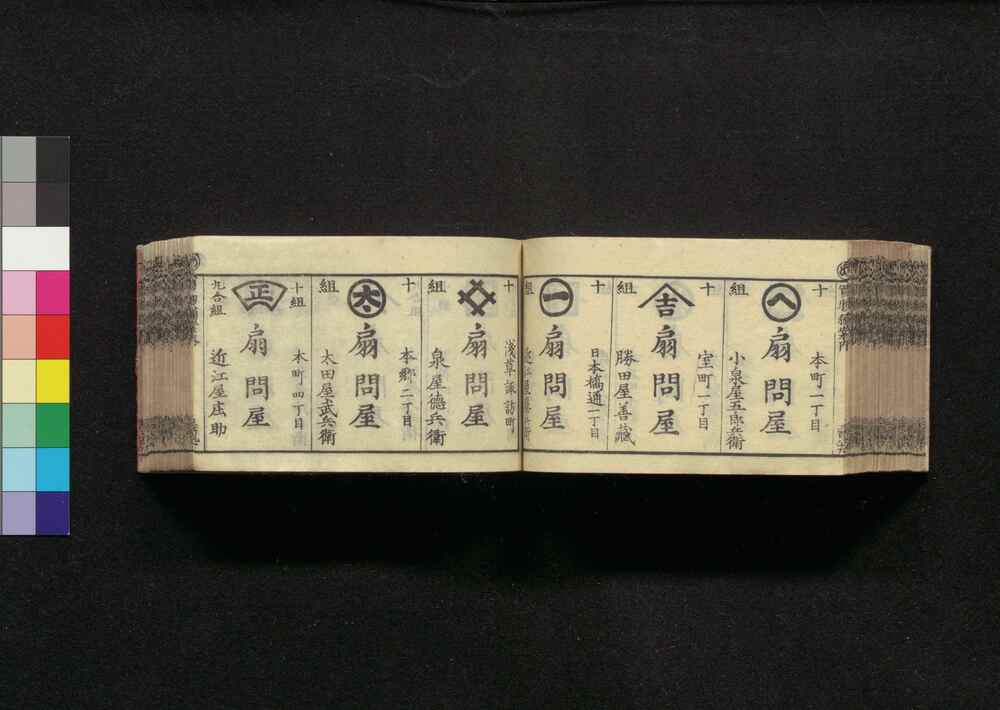 十
本町一丁目
へ
扇問屋
組
小泉屋五郎兵衛
十
室町一丁目
吉
扇問屋
組
勝田屋善藏
十
日本橋通一丁目
一
扇問屋
組
十
淺草諏訪町
扇問屋
組
泉屋德兵衛
十
本郷二丁目
太
扇問屋
組
太田屋武兵衛
十組
本町四丁目
正
扇問屋
九合組
近江屋庄助